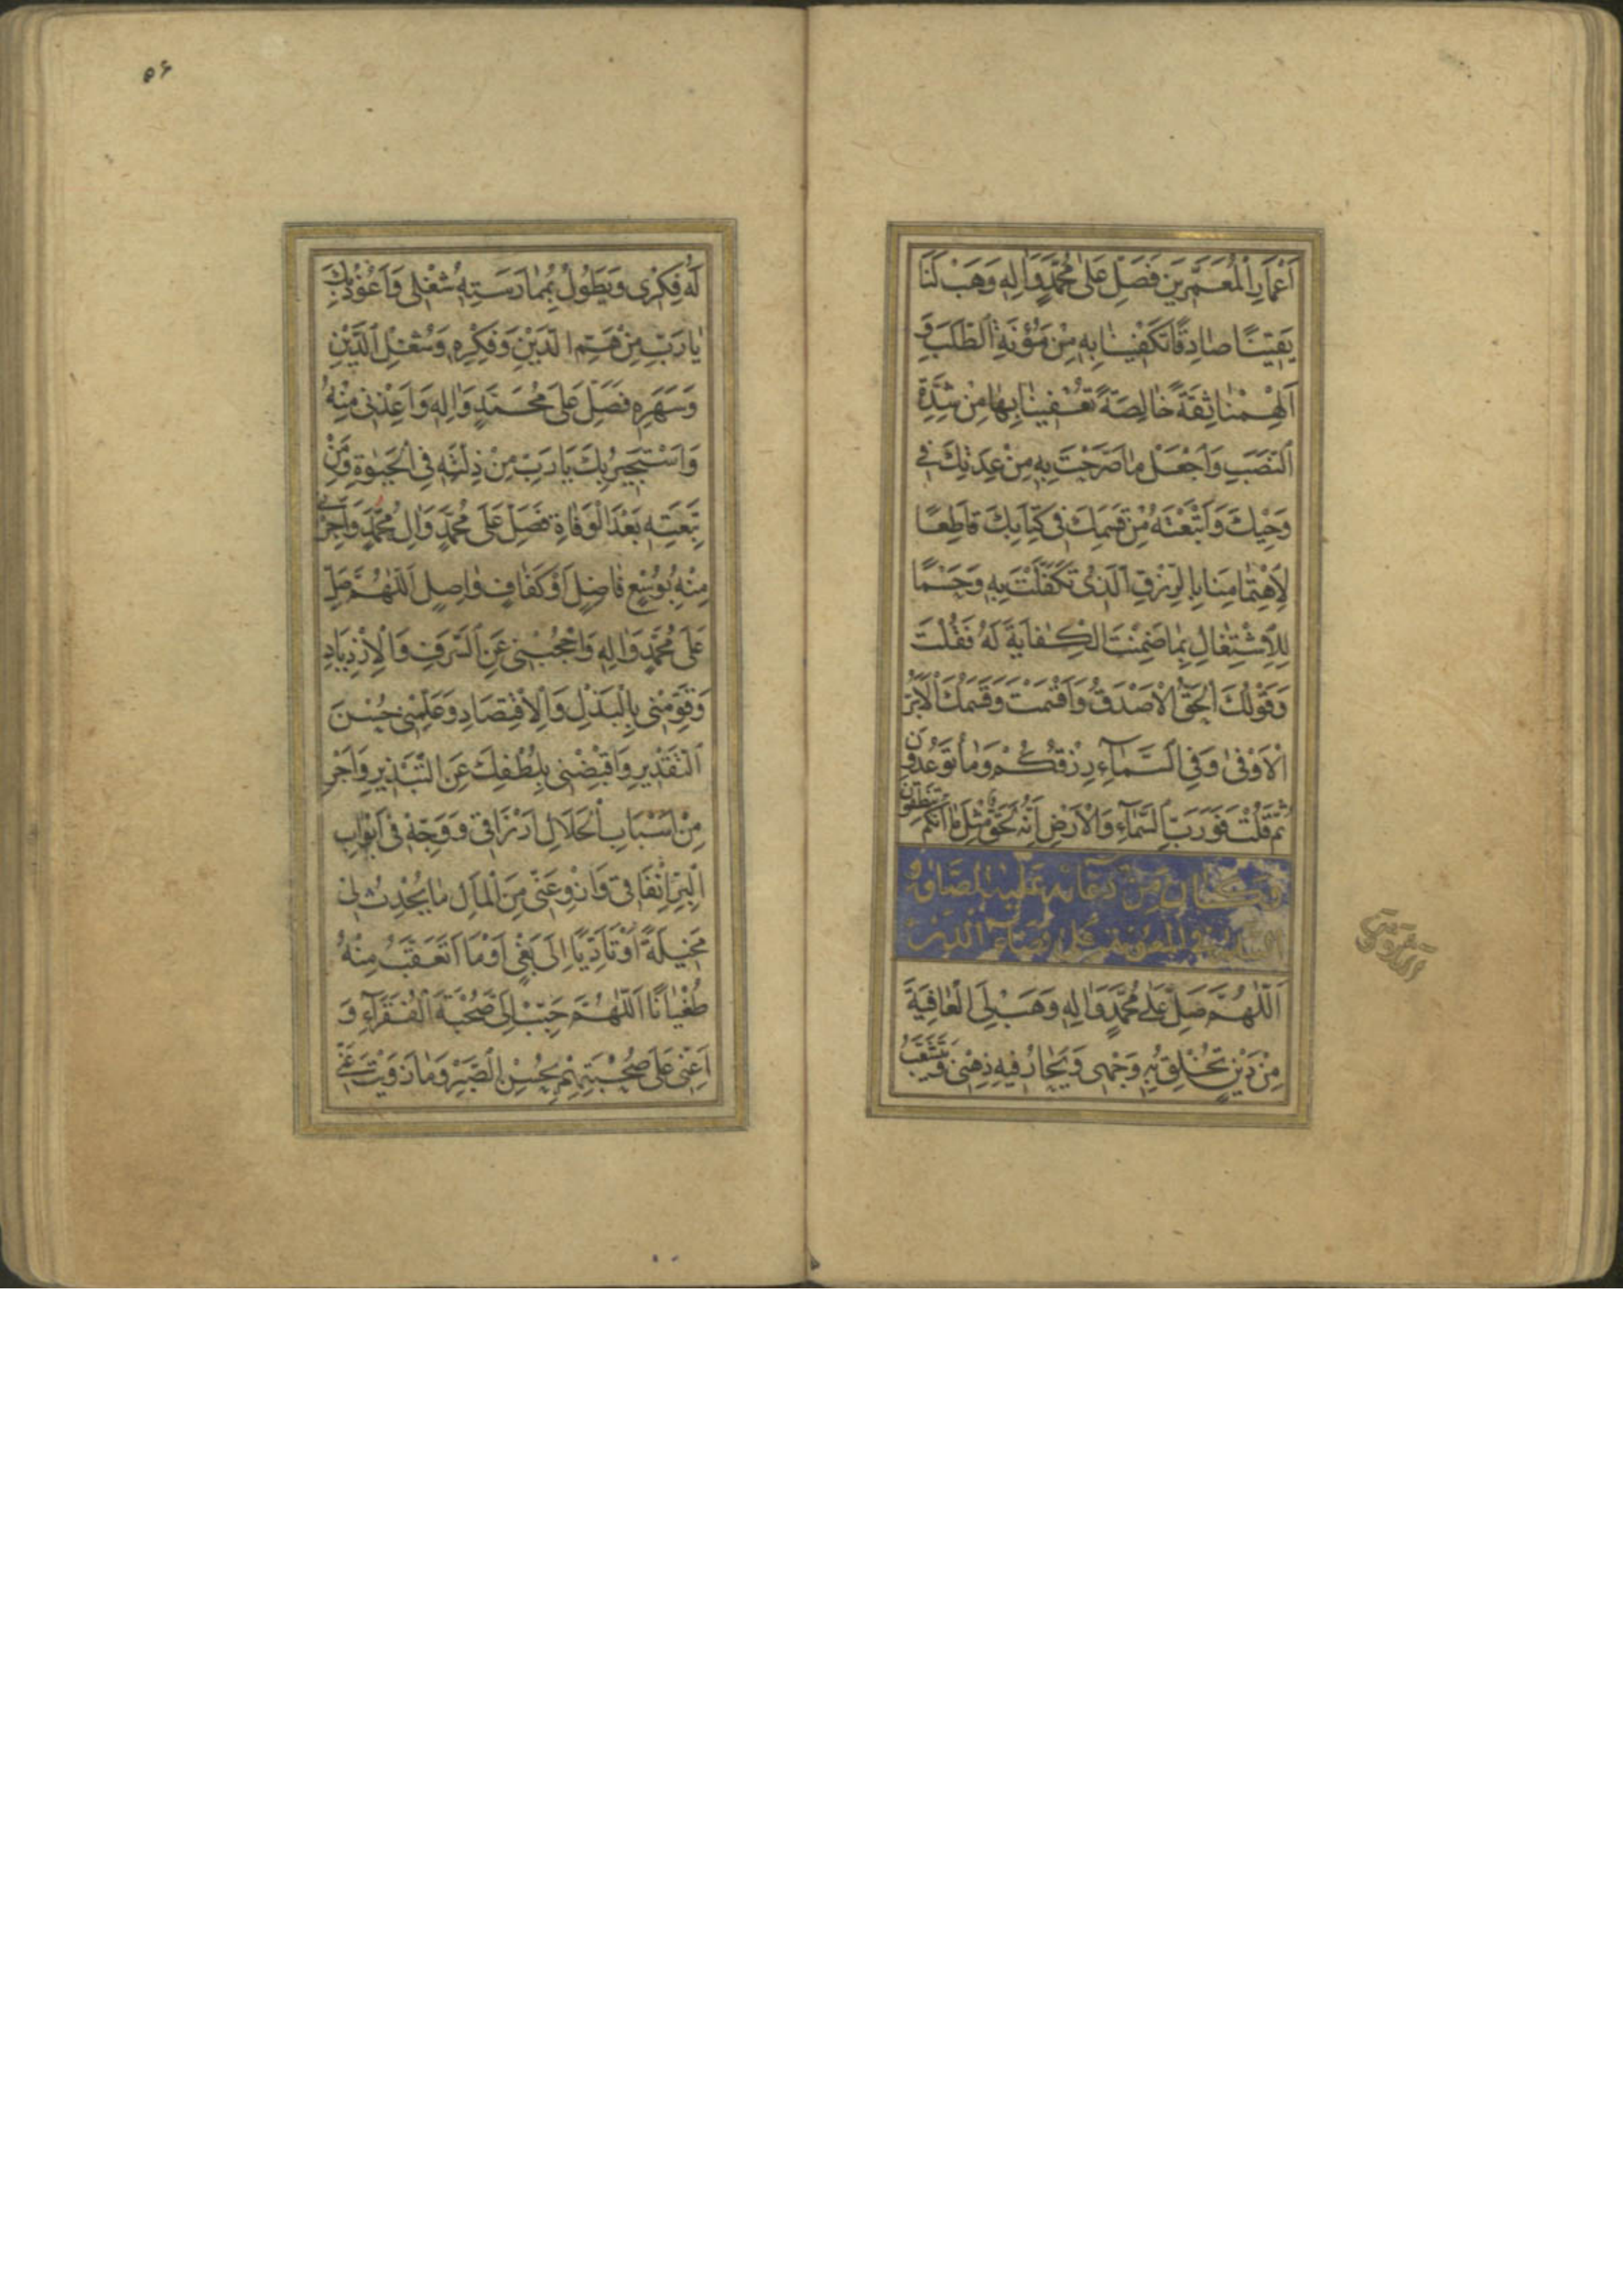 اَعْمَارِ الْمُعَمَّرِينَ فَصَلِّ عَلٰى مُحَمَّدٍ وَاٰلِهِ وَهَبْ لَنَا
يَقِيْنًا صَادِقًا تَكْفِيْنَا بِهِ مِنْ مَؤُنَةِ الطَّلَبِ وَ
اَلْهِمْنَا ثِقَةً خَالِصَةً تُعْفِينَا بِهَا مِنْ شِدَّةِ
النَّصَبِ وَاجْعَلْ مَا صَرَّحْتَ بِهِ مِنْ عِدَتِكَ فِي
وَحْيِكَ وَاَتْبَعْتَهُ مِنْ قَسَمِكَ فِي كِتَابِكَ قَاطِعًا
لِاهْتِمَامِنَا بِالرِّزْقِ الَّذِي تَكَفَّلْتَ بِهِ وَحَسْمًا
لِلْاِشْتِغَالِ بِمَا ضَمِنْتَ الْكِفَايَةَ لَهُ فَقُلْتَ
وَقَوْلُكَ الْحَقُّ الْاَصْدَقُ وَاَقْسَمْتَ وَقَسَمُكَ الْاَبَرُّ
الْاَوْفٰى وَفِي السَّمَآءِ رِزْقُكُمْ وَمَا تُوعَدُونَ
ثُمَّ قُلْتَ فَوَرَبِّ السَّمَآءِ وَالْاَرْضِ اِنَّهُ لَحَقٌّ مِثْلَ مَا اَنَّكُمْ تَنْطِقُونَ
وَكَانَ مِنْ دُعَائِهِ عَلَيْهِ الصَّلٰوةُ وَ
السَّلَامُ فِي الْمَعُونَةِ عَلٰى قَضَآءِ الدَّيْنِ
اَللّٰهُمَّ صَلِّ عَلٰى مُحَمَّدٍ وَاٰلِهِ وَهَبْ لِيَ الْعَافِيَةَ
مِنْ دَيْنٍ تُخْلِقُ بِهِ وَجْهِي وَيَحَارُ فِيهِ ذِهْنِي وَيَتَشَعَّبُ
۵۶
لَهُ فِكْرِي وَيَطُولُ بِمُمَارَسَتِهِ شُغْلِي وَاَعُوذُ بِكَ
يَا رَبِّ مِنْ هَمِّ الدَّيْنِ وَفِكْرِهِ وَشُغْلِ الدَّيْنِ
وَسَهَرِهِ فَصَلِّ عَلَى مُحَمَّدٍ وَاٰلِهِ وَاَعِذْنِي مِنْهُ
وَاَسْتَجِيرُ بِكَ يَا رَبِّ مِنْ ذِلَّتِهِ فِي الْحَيٰوةِ وَمِنْ
تَبِعَتِهِ بَعْدَ الْوَفَاةِ فَصَلِّ عَلَى مُحَمَّدٍ وَاٰلِ مُحَمَّدٍ وَاَجِرْنِي
مِنْهُ بِوُسْعٍ فَاضِلٍ اَوْ كَفَافٍ وَاصِلٍ اَللّٰهُمَّ صَلِّ
عَلَى مُحَمَّدٍ وَاٰلِهِ وَاحْجُبْنِي عَنِ السَّرَفِ وَالْاِزْدِيَادِ
وَقَوِّمْنِي بِالْبَذْلِ وَالْاِقْتِصَادِ وَعَلِّمْنِي حُسْنَ
التَّقْدِيرِ وَاقْبِضْنِي بِلُطْفِكَ عَنِ التَّبْذِيرِ وَاَجْرِ
مِنْ اَسْبَابِ الْحَلَالِ اَرْزَاقِي وَوَجِّهْ فِي اَبْوَابِ
الْبِرِّ اِنْفَاقِي وَازْوِ عَنِّي مِنَ الْمَالِ مَا يُحْدِثُ لِي
مَخِيلَةً اَوْ تَأَدِّيًا اِلَى بَغْيٍ اَوْ مَا اَتَعَقَّبُ مِنْهُ
طُغْيَانًا اَللّٰهُمَّ حَبِّبْ اِلَيَّ صُحْبَةَ الْفُقَرَآءِ وَ
اَعِنِّي عَلَى صُحْبَتِهِمْ بِحُسْنِ الصَّبْرِ وَمَا زَوَيْتَ عَنِّي